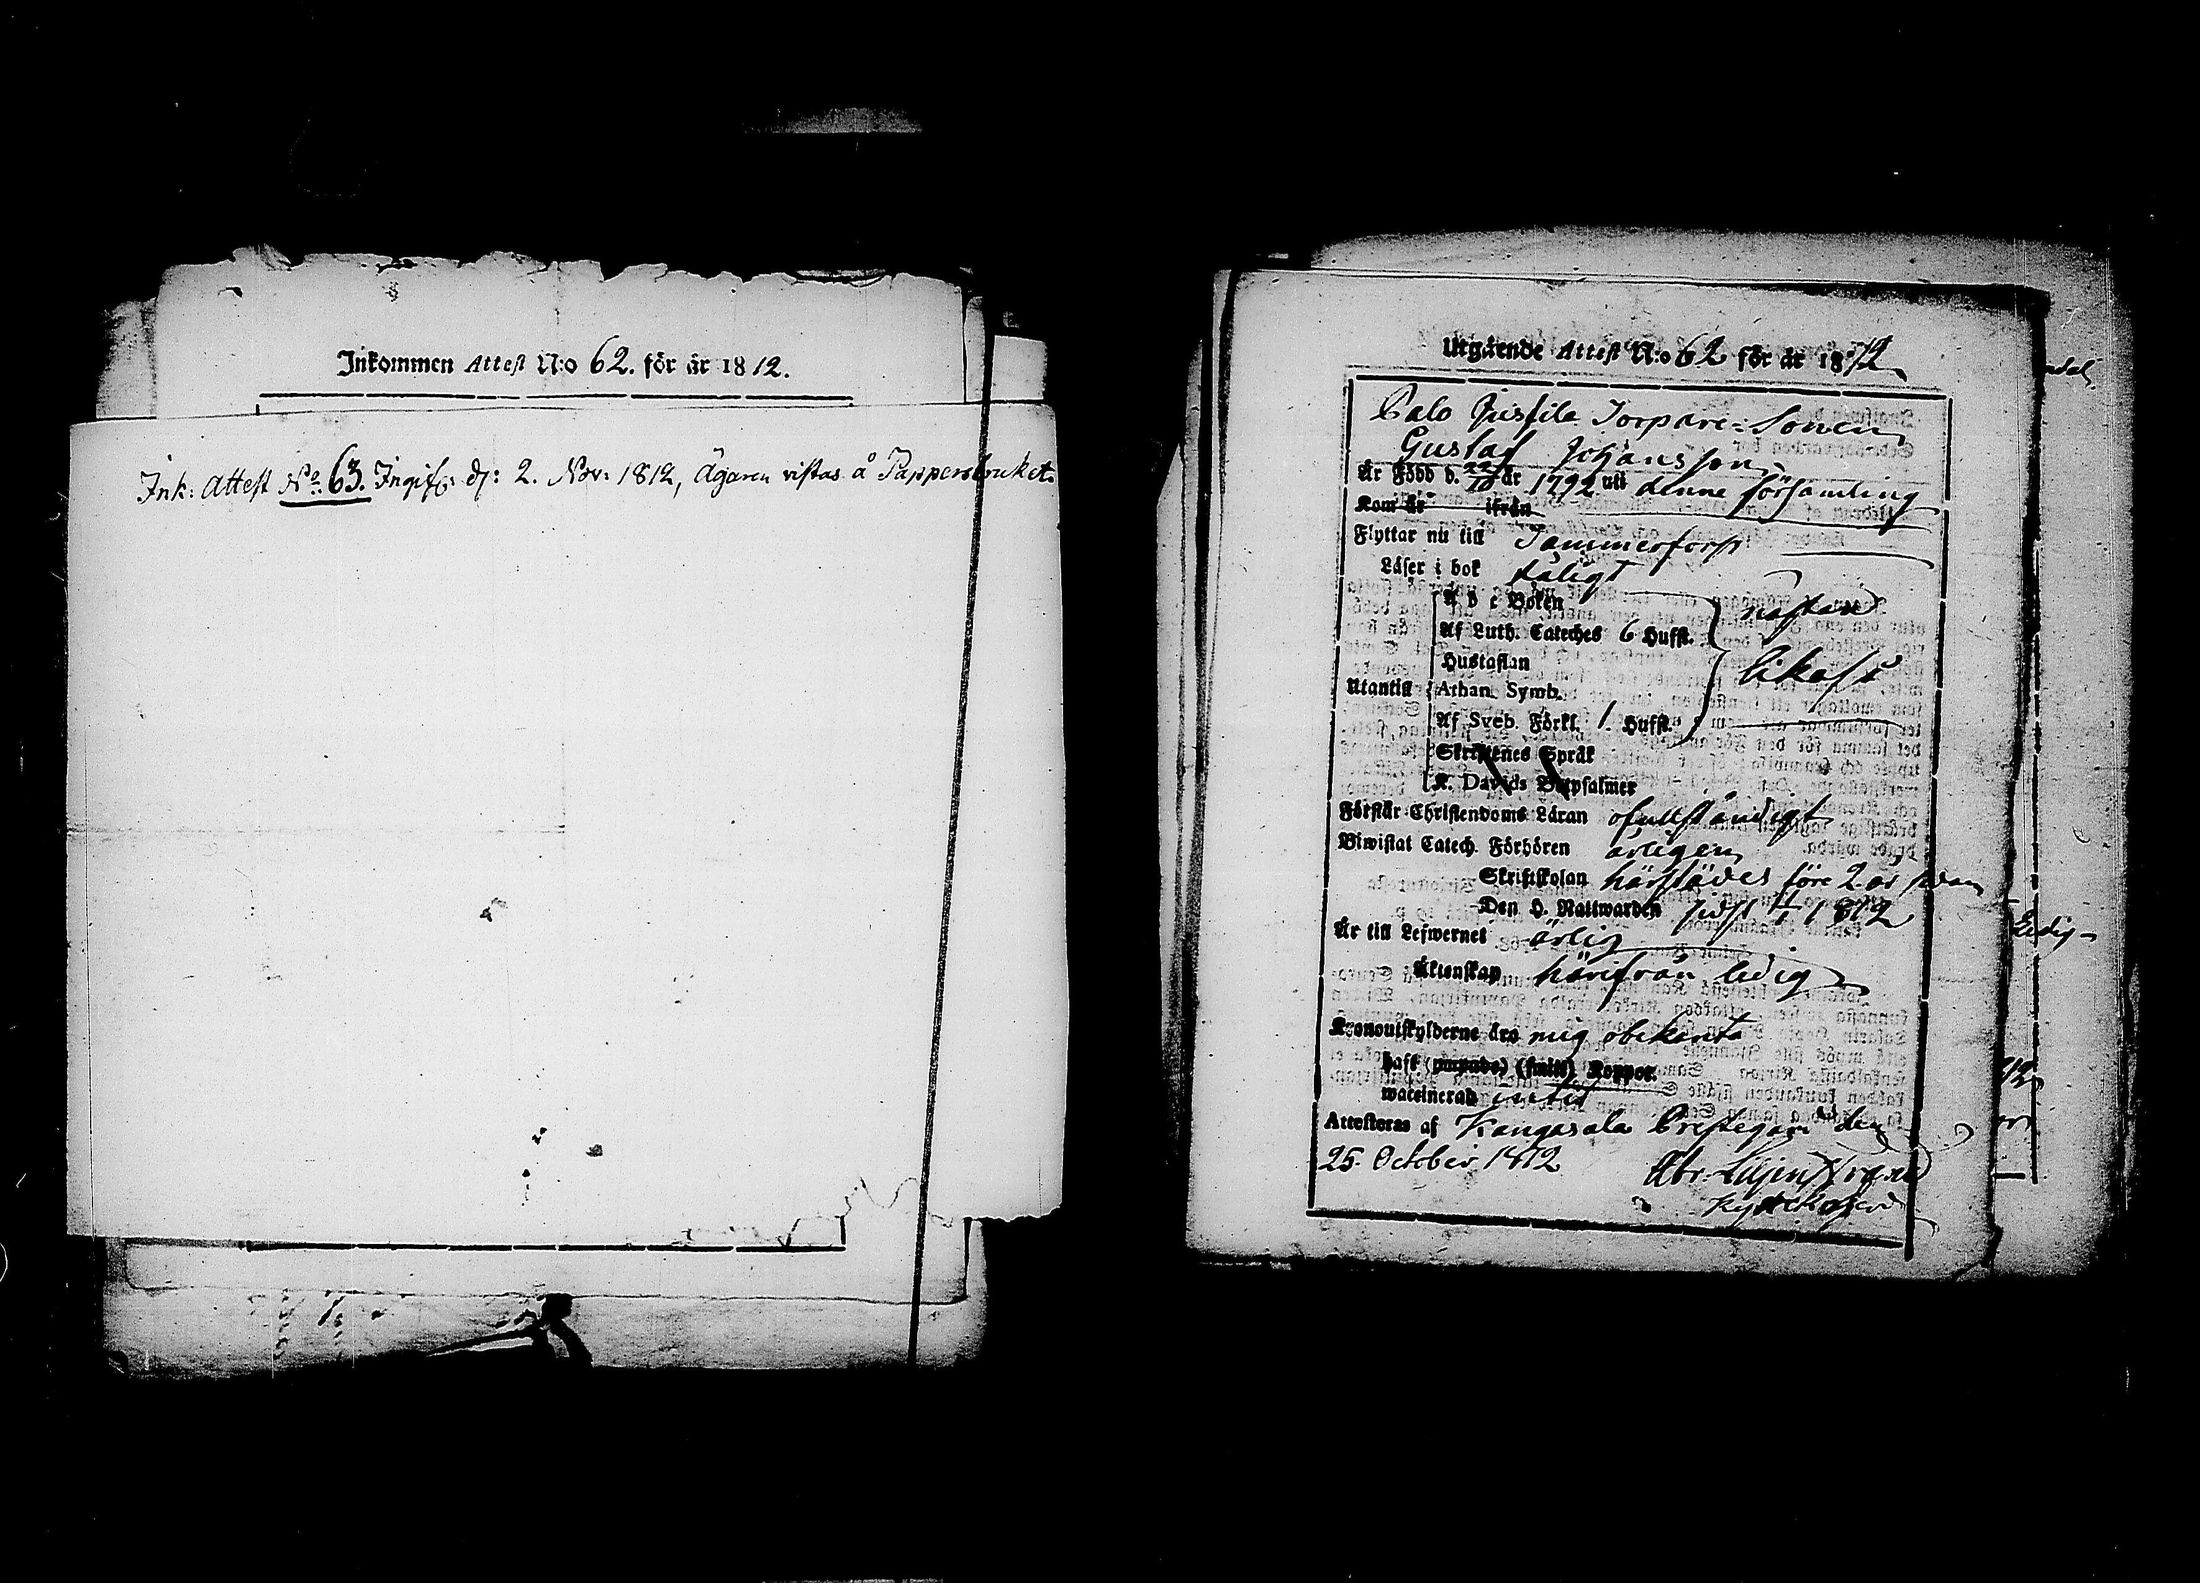 Inkommen Attest N:o 62. för år 1812.
Ink: Attest No: 63. Ingifv: d: 2. Nov: 1812, Ägaren vistas å Pappersbruket.
Utgående Attest N:o 62 för år 1812
Palo Torpare=Sonen
Gustaf Johansson
Är Född d. 22/10 år 1792 uti denne församling
Kom år ifrån
Flyttar nu till Tammerfors
Läser i bok
A b c Boken nästan
Af Luth. Cateches 6 Hufst.
Hustaflan likaså
Utantill Athan. Symb.
Af Sveb. Förkl. 1. Hufst.
Skriftenes Språk
K. Davids Botpsalmer
Förstår Christendoms Läran ofullständigt
Biwistat Catech. Förhören årligen
Skriftskolan härstädes före 2 år sedan
Den H. Nattwarden sidst 1812
Är till Lefwernet ärlig
Äktenskap härifrån ledig
Kronoutskylderne äro mig obekanta
haft (smitt) Koppor.
waccinerad intet
Attesteras af Kangasala Prestegård den
25. October 1812 Abr: Liljenstrand
Ledig